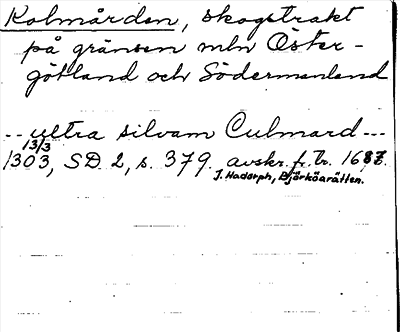 Kolmården, skogstrakt
på gränsen mln Öster-
götland och Södermanland
-- ultra silvam Culmard---
13/3
1303, SD 2, s. 379. avskr. fr. tr. 1687.
J. Hadorph, Björköarätten.